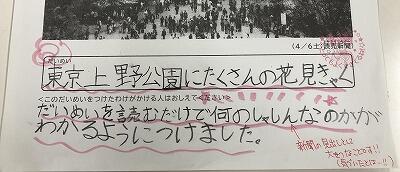 (4/6土:読売新聞)
だいめい
東京上野公園にたくさんの花見きゃく
<このだいめいをつけたわけがかける人はおしえてください>
だいめいを読むだけで何のしゃしんなのかが
わかるようにつけました。
新聞の見出しとして
大切なことです!!